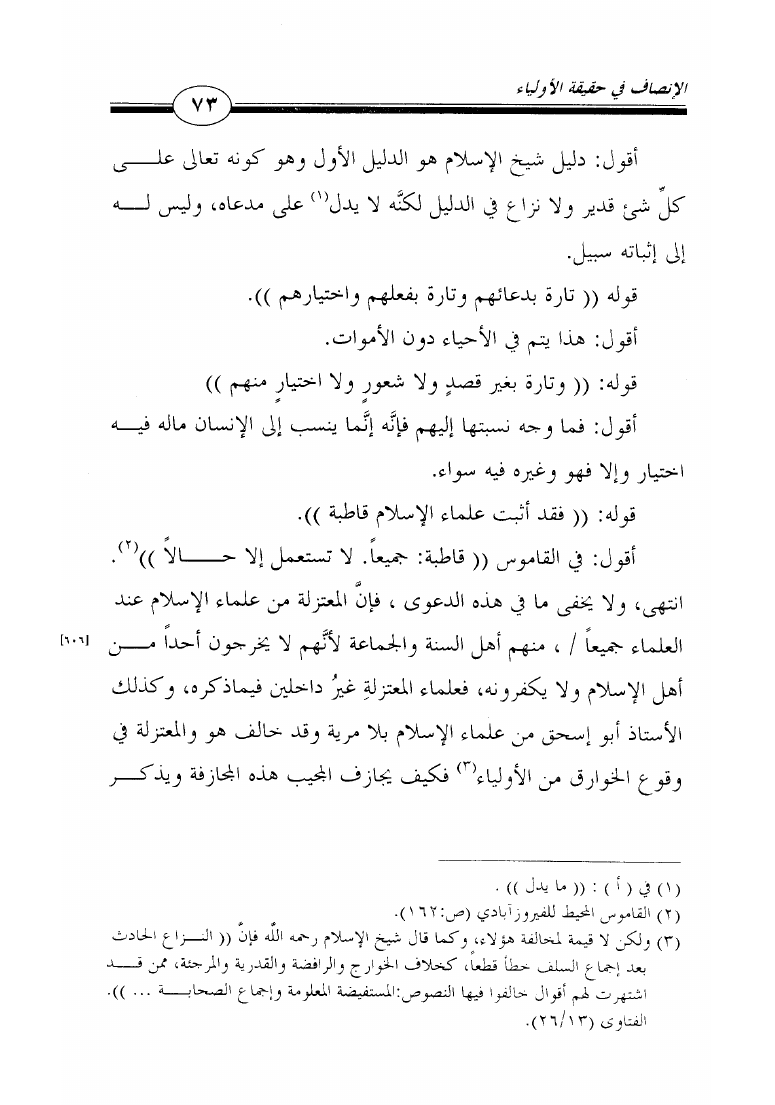 الإنصاف في حقيقة الأولياء
٧٣
أقول: دليل شيخ الإسلام هو الدليل الأول وهو كونه تعالى على
كلِّ شئ قدير ولا نزاع في الدليل لكنَّه لا يدل(١) على مدعاه، وليس له
إلى إثباته سبيل.
قوله (( تارة بدعائهم وتارة بفعلهم واختيارهم )).
أقول: هذا يتم في الأحياء دون الأموات.
قوله: (( وتارة بغير قصدٍ ولا شعورٍ ولا اختيارٍ منهم ))
أقول: فما وجه نسبتها إليهم فإنَّه إنَّما ينسب إلى الإنسان ماله فيه
اختيار وإلا فهو وغيره فيه سواء.
قوله: (( فقد أثبت علماء الإسلام قاطبة )).
أقول: في القاموس (( قاطبة: جميعاً. لا تستعمل إلا حالاً ))(٢).
انتهى، ولا يخفى ما في هذه الدعوى ، فإنَّ المعتزلة من علماء الإسلام عند
العلماء جميعاً / ، منهم أهل السنة والجماعة لأنَّهم لا يخرجون أحداً من [٦٠٦]
أهل الإسلام ولا يكفرونه، فعلماء المعتزلةِ غيرُ داخلين فيماذكره، وكذلك
الأستاذ أبو إسحق من علماء الإسلام بلا مرية وقد خالف هو والمعتزلة في
وقوع الخوارق من الأولياء(٣) فكيف يجازف المجيب هذه المجازفة ويذكر
(١) في ( أ ) : (( ما يدل )) .
(٢) القاموس المحيط للفيروزآبادي (ص:١٦٢).
(٣) ولكن لا قيمة لمخالفة هؤلاء، وكما قال شيخ الإسلام رحمه الله فإنَّ (( النزاع الحادث
بعد إجماع السلف خطأ قطعاً، كخلاف الخوارج والرافضة والقدرية والمرجئة، ممن قد
اشتهرت لهم أقوال خالفوا فيها النصوص:المستفيضة المعلومة وإجماع الصحابة ... )).
الفتاوى (٢٦/١٣).